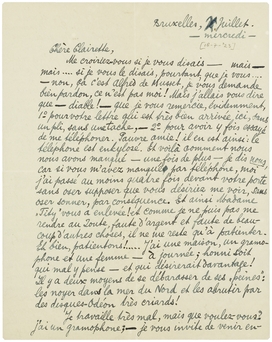 Bruxelles, Juillet.
— mercredi —
Chère Clairette,
Me croiriez-vous si je vous disais — mais —
mais.... si je vous le disais, pourtant que je vous....
— non, ça c'est Alfred de Musset, je vous demande
bien pardon, ce n'est pas moi! Mais j'allais vous dire
que — diable! — que je vous remercie, évidemment,
1º pour votre lettre qui est très bien arrivée, ici, dans
un pli, sans 2º pour avoir y fois essayé
de me téléphoner. Pauvre âme! il en est ainsi: le
téléphone est Et voilà comment nous
nous avons manqué — une fois de plus — je dis nous
car si vous m'avez manqué par téléphone, moi
j'ai passé au moins quatre fois devant votre porte
sans oser supposer que vous désiriez me voir, sans
oser sonner, par conséquence. Et ainsi Madame
vous a enlevée! et comme je ne puis pas me
rendre au Zoute, faute d'argent et faute de beau-
coup d'autres choses, il ne me reste qu'à patienter.
Eh bien, patientons!..... J'ai une maison, un gramo-
phone et une femme — à journée; honni soit
qui mal y pense — et qui désirerait davantage!
Il y a deux moyens de se débarasser de ses peines:
les noyer dans la mer du Nord et les abrutir par
des disques-Odéon très criards!
Je travaille très mal, mais que voulez-vous?
J'ai un gramophone; — je vous invite de venir en-